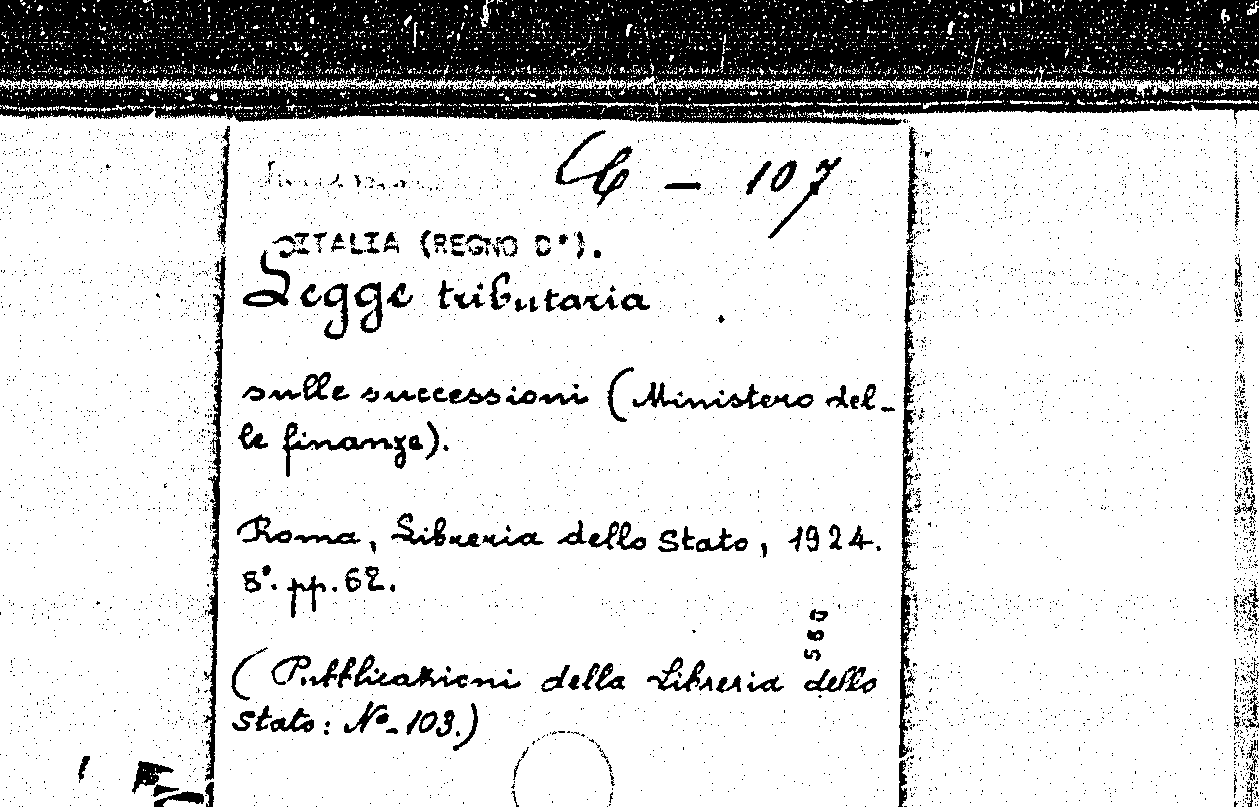 - 107
ITALIA (REGNO D').
Legge tributaria
sulle successioni (Ministero del-
le finanze).
Roma, Libreria dello Stato, 1924.
8°. pp. 62.
580
(Pubblicazioni della Libreria dello
Stato: N°- 103.)